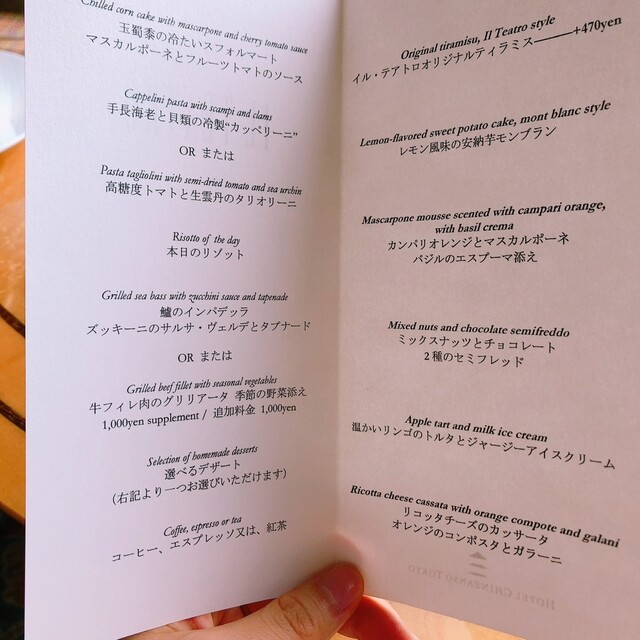 Chilled corn cake with mascarpone and cherry tomato sauce
玉蜀黍の冷たいスフォルマート
マスカルポーネとフルーツトマトのソース
Cappelini pasta with scampi and clams
手長海老と貝類の冷製“カッペリーニ”
OR または
Pasta tagliolini with semi-dried tomato and sea urchin
高糖度トマトと生雲丹のタリオリーニ
Risotto of the day
本日のリゾット
Grilled sea bass with zucchini sauce and tapenade
鱸のインパデッラ
ズッキーニのサルサ・ヴェルデとタプナード
OR または
Grilled beef fillet with seasonal vegetables
牛フィレ肉のグリリアータ 季節の野菜添え
1,000yen supplement / 追加料金 1,000yen
Selection of homemade desserts
選べるデザート
（右記より一つお選びいただけます）
Coffee, espresso or tea
コーヒー、エスプレッソ又は、紅茶
Original tiramisu, Il Teatro style
イル・テアトロオリジナルティラミス―――+470yen
Lemon-flavored sweet potato cake, mont blanc style
レモン風味の安納芋モンブラン
Mascarpone mousse scented with campari orange,
with basil crema
カンパリオレンジとマスカルポーネ
バジルのエスプーマ添え
Mixed nuts and chocolate semifreddo
ミックスナッツとチョコレート
2種のセミフレッド
Apple tart and milk ice cream
温かいリンゴのトルタとジャージーアイスクリーム
Ricotta cheese cassata with orange compote and galani
リコッタチーズのカッサータ
オレンジのコンポスタとガラーニ
HOTEL CHINZANSO TOKYO